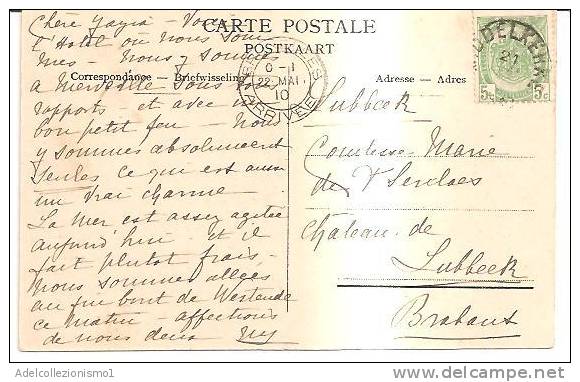 CARTE POSTALE
POSTKAART
Correspondance — Briefwisseling
Adresse — Adres
Chère
l'Hotel où nous som
mes - Nous y sommes
à merveille sous tous
rapports - et avec un
bon petit feu - Nous
y sommes absolument
seules ce qui est aussi
un vrai charme -
La mer est assez agitée
aujourd'hui et il
fait plutot frais -
nous sommes allées
au fin bout de Westende
ce matin - affections
de nous deux
0-1
22 MAI
10
ARRIVÉE
5c 5c
21
Lubbeek
Comtesse Marie
de T'Serclaes
Château de
Lubbeek
Brabant
Adelcollezionismo1
delcampe.net